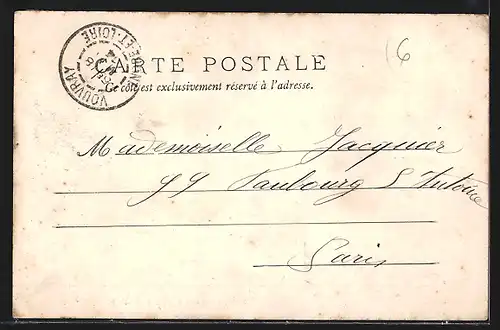 6
VOUVRAY
INDRE-ET-LOIRE
CARTE POSTALE
Ce côté est exclusivement réservé à l'adresse.
Mademoiselle Jacquier
99 Faubourg S^t Antoine
Paris